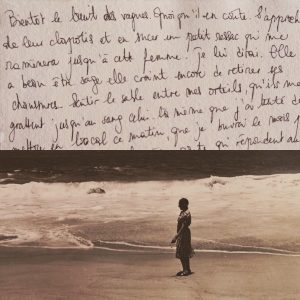 Bientôt le bruit des vagues. Quoi qu'il en coûte. S'approcher
de leur clapotis et en sucer un petit ressac qui me
ramènera jusqu'à cette femme. Je lui dirai. Elle
a beau être sage elle craint encore de retirer ses
chaussures. Sentir le sable entre mes orteils, qu'ils me
grattent jusqu'au sang celui-là même que j'ai tenté de
mettre en bocal ce matin, que je
qui répondent au